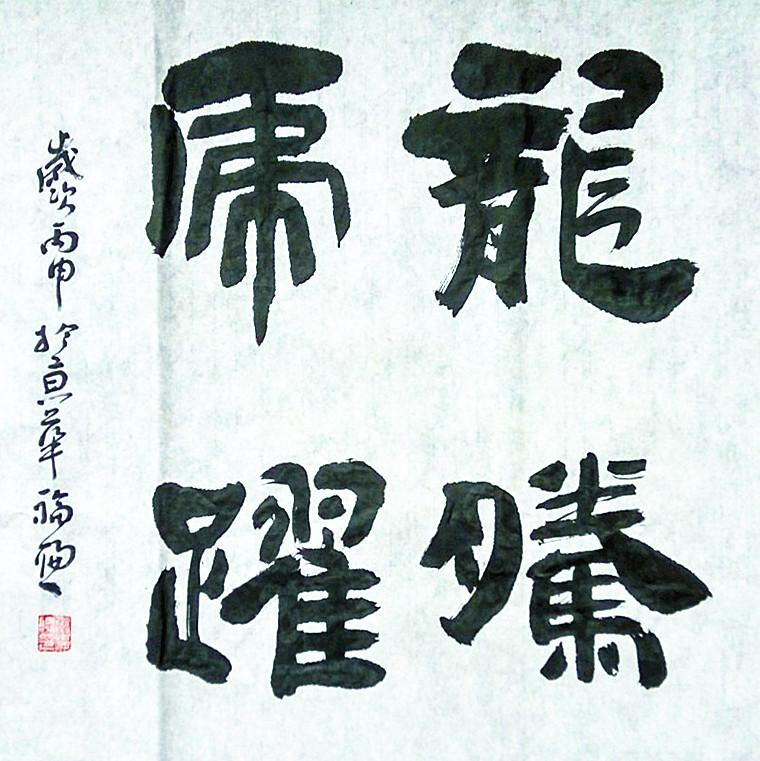 龍騰
虎躍
歲次丙申於京華福